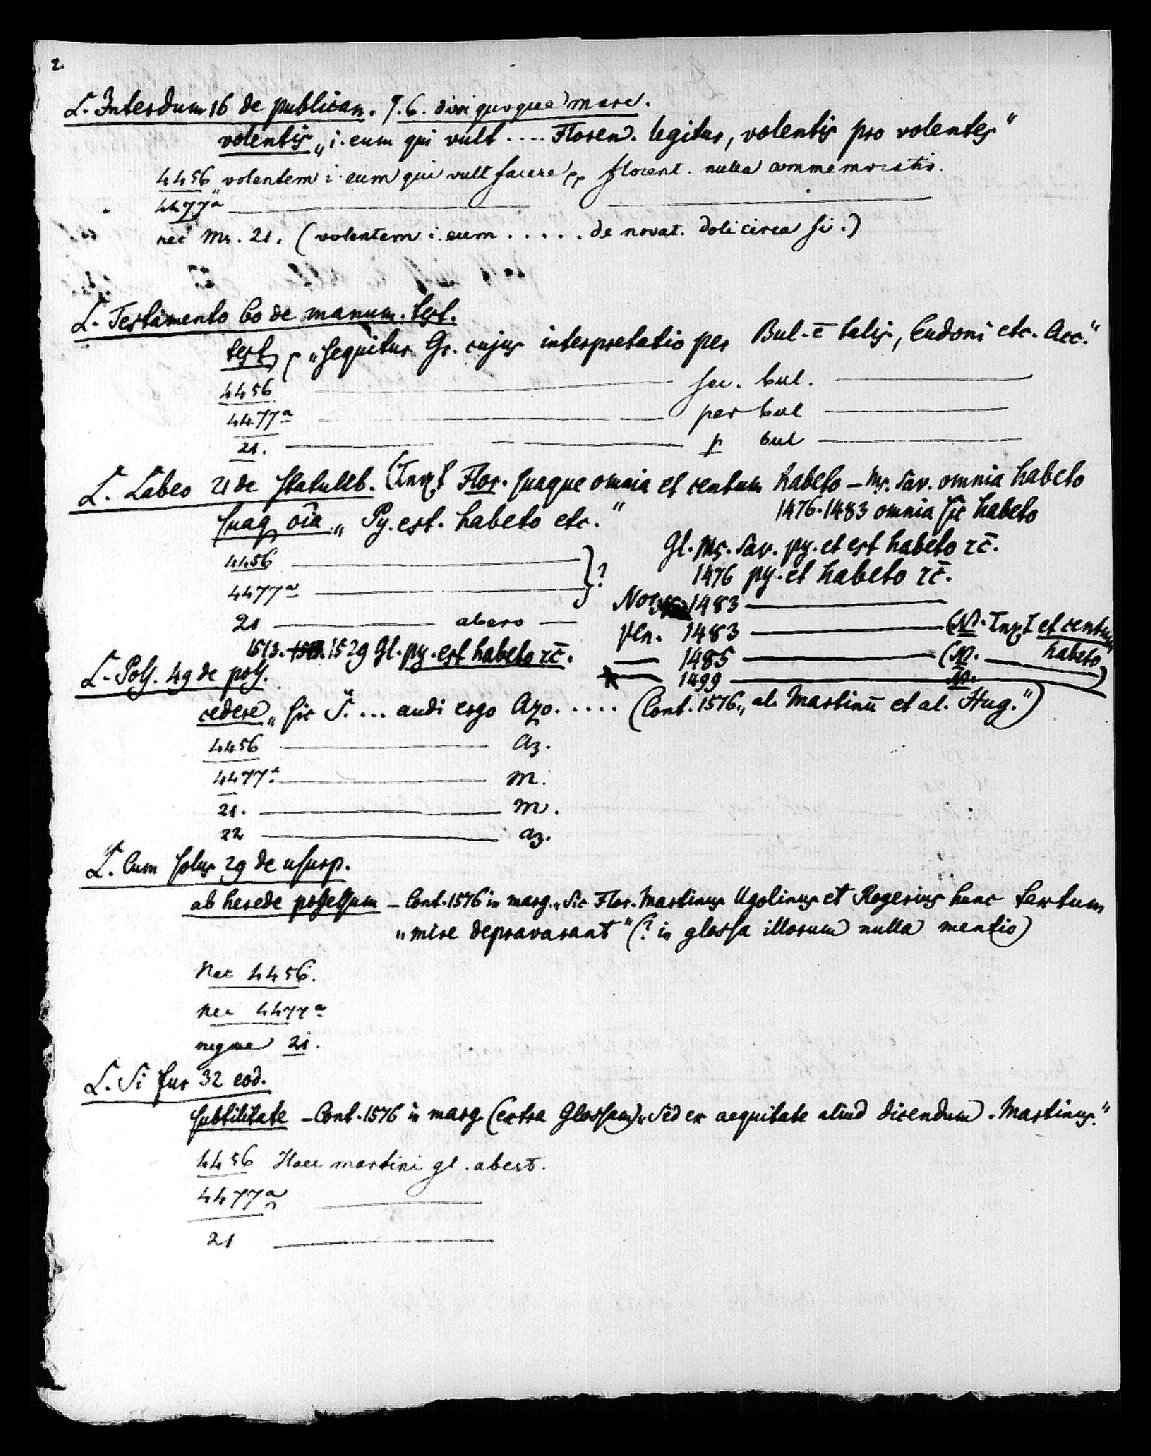 2.
L. Interdum 16 de publican. §. 6. divi quoque marc.
volentis „i. eum qui vult .... Floren. legitur, volentis pro volentes"
4456 volentem i. eum qui vult facere florent. nulla commemoratio.
4477a
nec Ms. 21. (volentem i. eum ..... de novat. doli circa fi.)
L. Testamento 60 de manum. test.
test „sequitur Gr. cujus interpretatio per Bul. talis, Eudoni etc. Acc."
4456 sec. bul.
4477a per bul
21. p bul
L. Labeo 21 de statulib. (Txt Flor. suaque omnia et centum habeto – Ms. Sav. omnia habeto
1476. 1483 omnia sic habeto
suaq oīa „ Py. est. habeto etc."
Gl. Ms. Sav. py. et est habeto ꝛc̄.
4456
1476 py. et habeto ꝛc̄.
4477a ?
Nor. 1483
21 abero
Ven. 1483 (N. Txt et centum habeto)
1513. 1529 Gl. py. est habeto ꝛc̄.
1485 (N.
1499 N. )
L. Poss. 49 de poss.
cedere „sic S. ... audi ergo Azo. ..... (Cont. 1576 „al. Martinū et al. Hug.")
4456 az.
4477a m.
21. m.
22 az.
L. Cum solus 29 de usurp.
ab herede possessum – Cont. 1576 in marg. „Sic Flor. Martinus Ugolinus et Rogerius hunc textum
„mire depravarant" (? in glossa illorum nulla mentio)
Nec 4456.
nec 4477a
neque 21.
L. Si fur 32 eod.
subtilitate – Cont. 1576 in marg (extra Glossam) „Sed ex aequitate aliud dicendum. Martinus."
4456 Haec martini gl. abest.
4477a
21